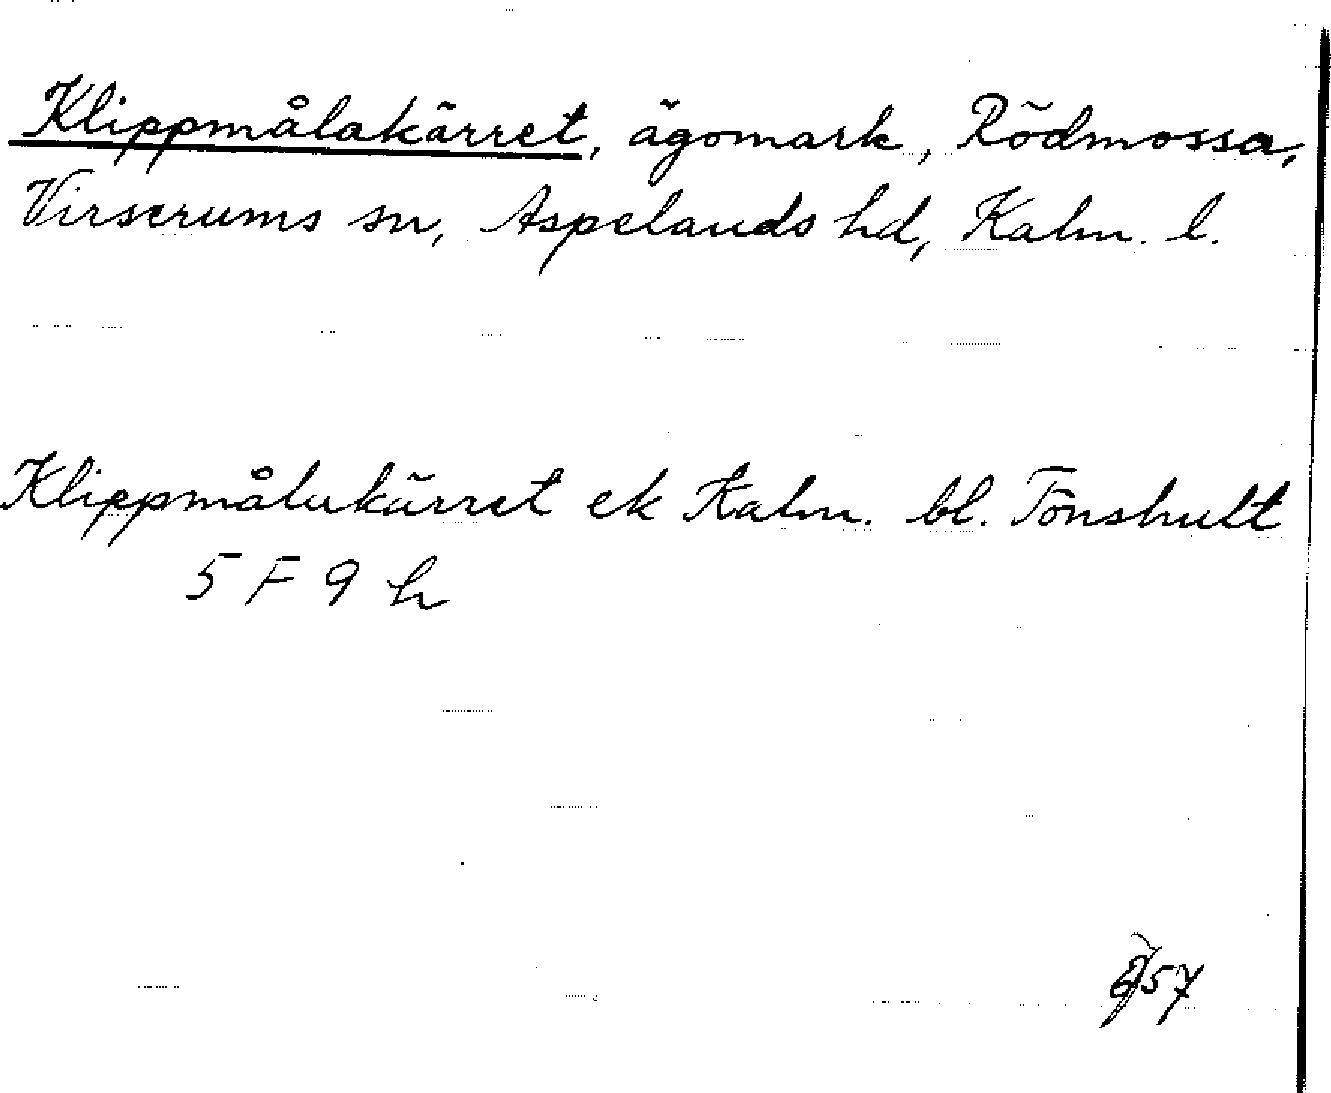 Klippmålakärret, ägomark, Rödmossa,
Virserums sn, Aspelands hd, Kalm. l.
Klippmålakärret ek Kalm. bl. Tönshult
5 F 9 h